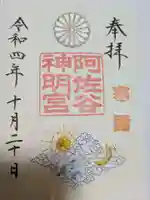 奉拝
阿佐谷
神明宮
令和四年十月二十日